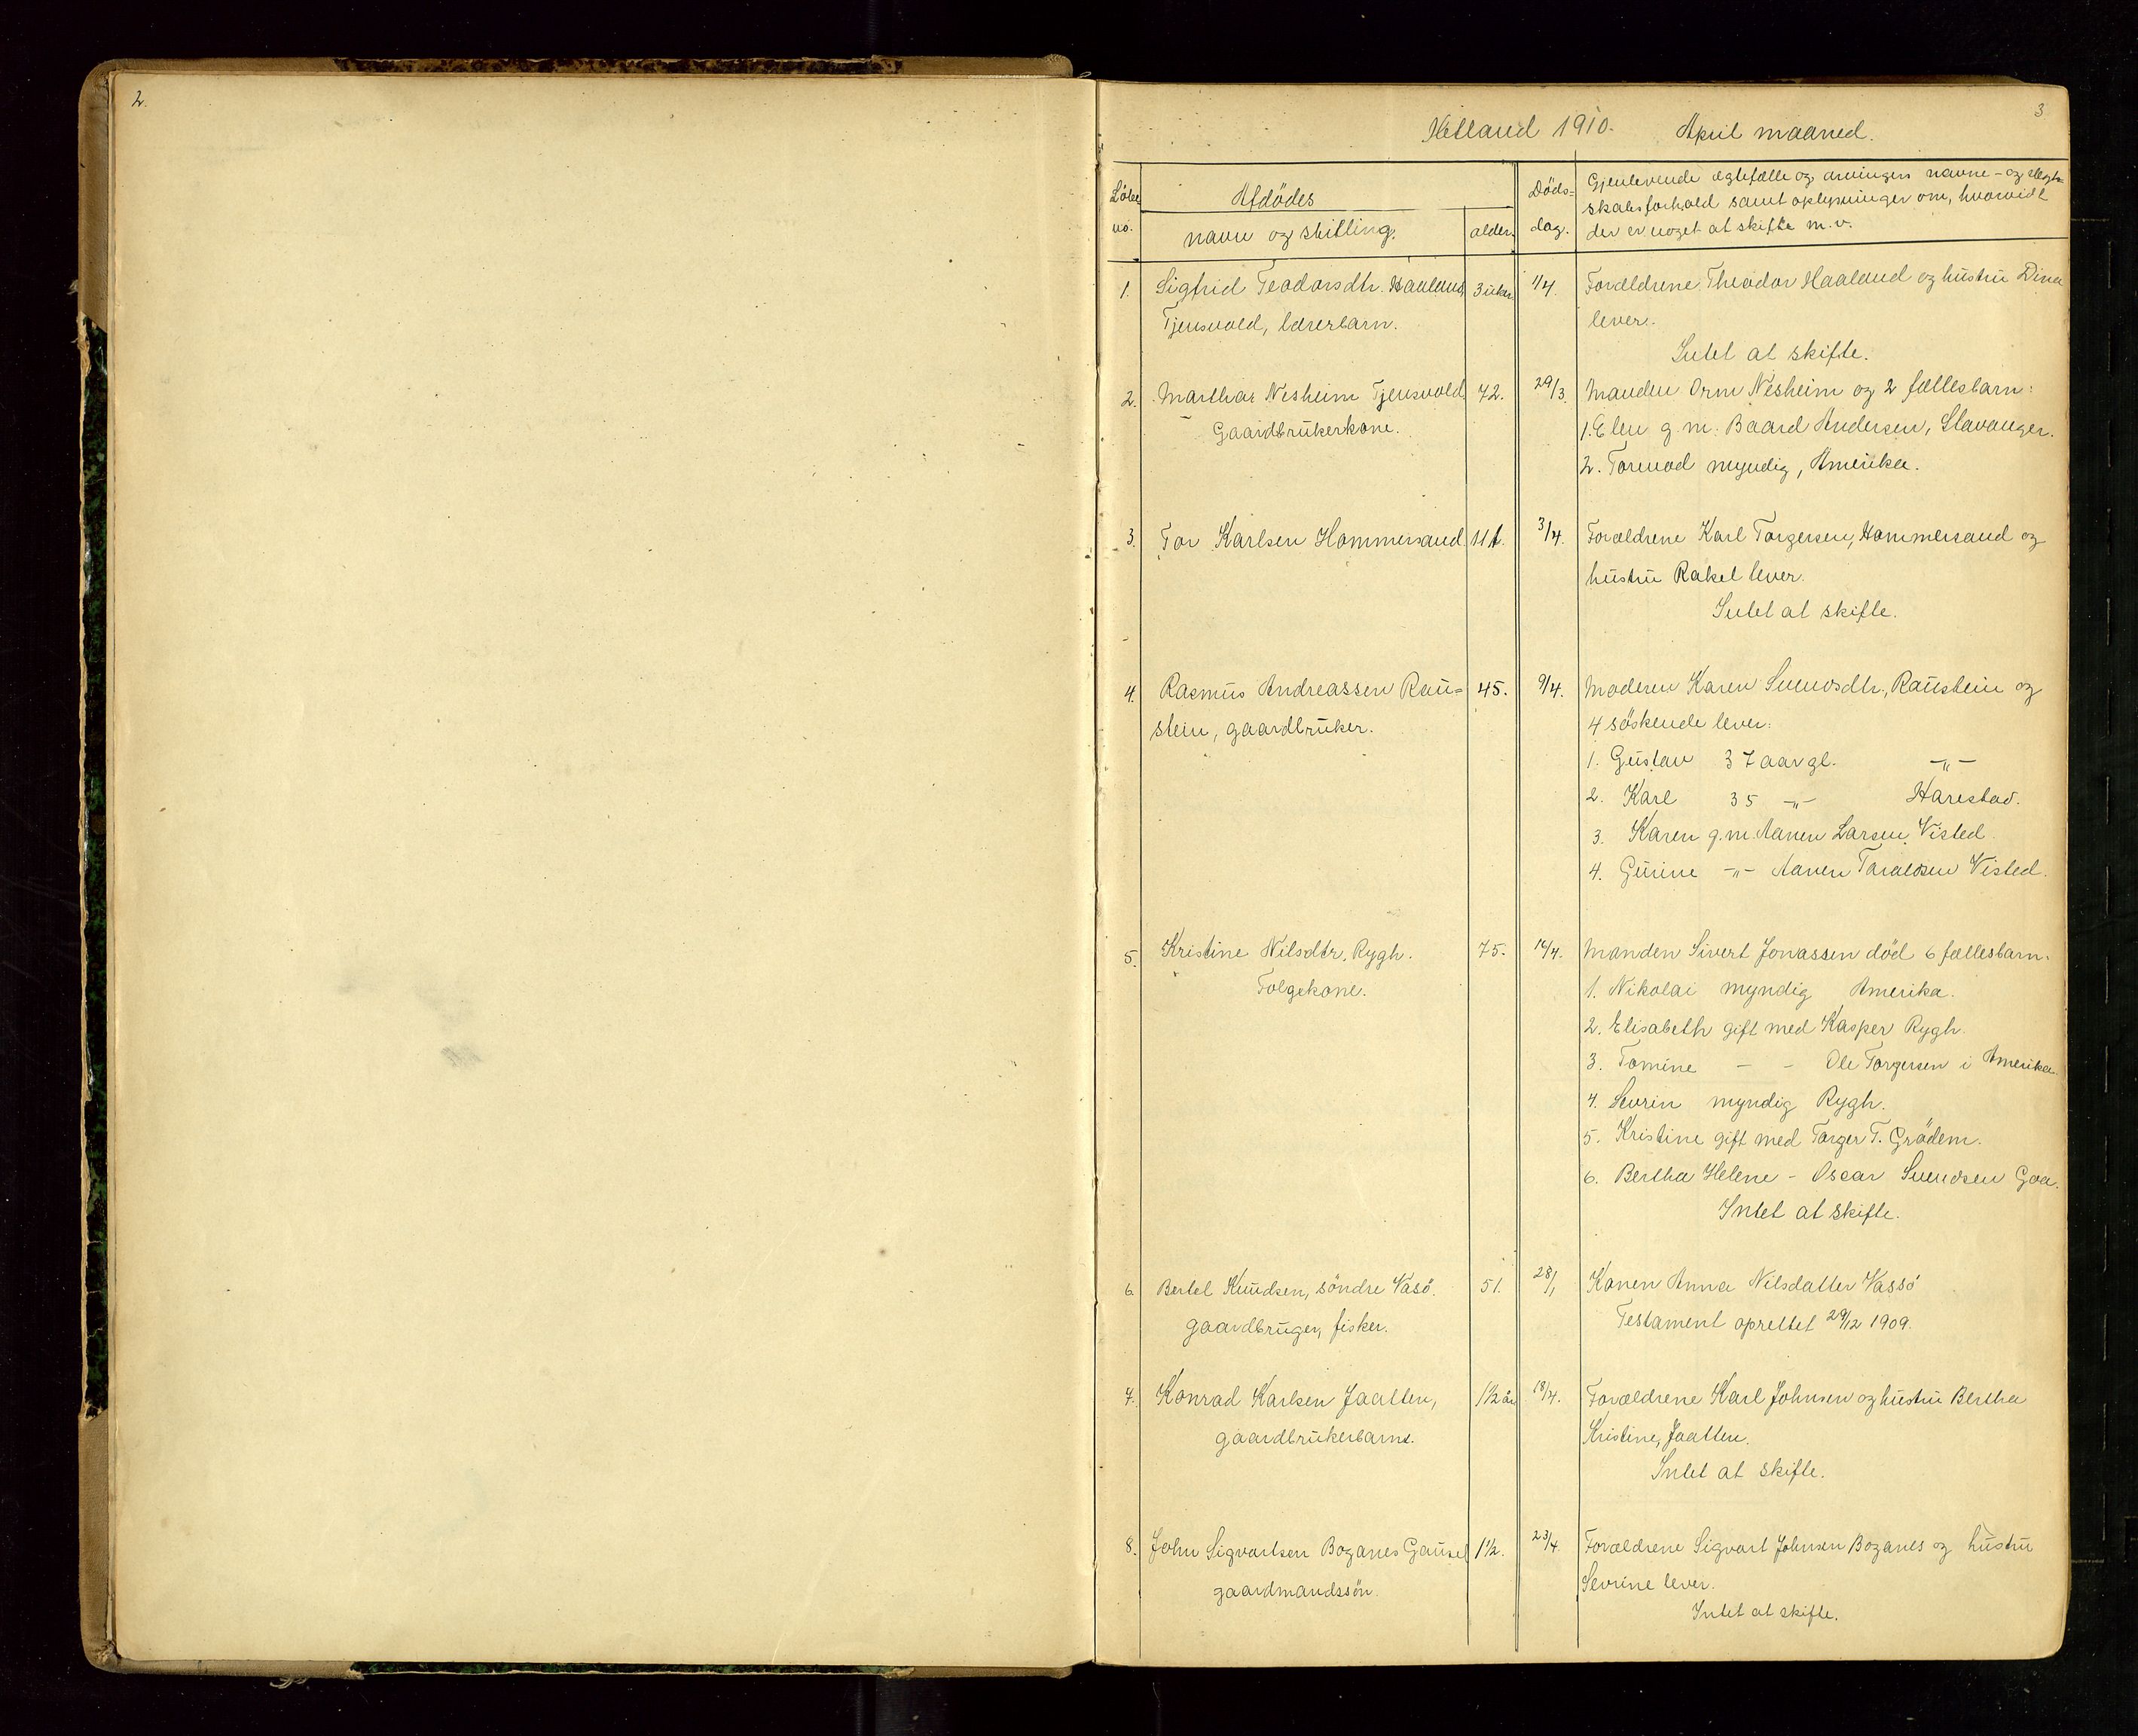 2.
3
Hetland 1910. April maaned.
Löbe no. Afdödes navn og stilling. alder. Döds-dag. Gjenlevende egtefælle og arvingers navne- og slegt-
skabsforhold samt oplysninger om, hvorvidt
der er noget at skifte m.v.
1. Sigfrid Teodorsdtr. Haaland, 3 uker. 1/4. Forældrene Theodor Haaland og hustru Dina
Tjensvold, lærerbarn. lever.
Intet at skifte.
2. Martha Nesheim Tjensvold, 72. 29/3. Manden Orm Nesheim og 2 fællesbarn:
Gaardbrukerkone. 1. Elen g.m. Baard Andersen, Stavanger.
2. Tormod myndig, Amerika.
3. Tor Karlsen Hommersand. 11 t. 3/4. Forældrene Karl Torgersen, Hommersand og
hustru Rakel lever.
Intet at skifte.
4. Rasmus Andreassen Rau= 45. 9/4. Moderen Karen Svensdtr., Raustein og
stein, gaardbruker. 4 söskende lever:
1. Gustav 37 aar gl. -"-
2. Karl 35 -"- Harestad.
3. Karen g.m. Aanen Larsen Visted.
4. Gurine -"- Aanen Taraldsen Visted.
5. Kristine Nilsdtr. Rygh. 75. 16/4. Manden Sivert Jonassen död 6 fællesbarn.
Folgekone. 1. Nikolai myndig Amerika.
2. Elisabeth gift med Kasper Rygh.
3. Tomine - - Ole Torgersen i Amerika.
4. Sevrin myndig Rygh.
5. Kristine gift med Torger T. Grödem.
6. Bertha Helene - Oscar Svendsen Goa.
Intet at skifte.
6. Bertel Knudsen, söndre Vasö. 51. 28/1 Konen Anna Nilsdatter Vassö
gaardbruger, fisker. Testament oprettet 29/12 1909.
7. Konrad Karlsen Jaatten, 1½ år 18/4. Forældrene Karl Johnsen og hustru Bertha
gaardbrukerbarns. Kristine, Jaatten.
Intet at skifte.
8. John Sigvartsen Boganes Gausel 1½. 23/4. Forældrene Sigvart Johnsen Boganes og hustru
gaardmandssön. Sevrine lever.
Intet at skifte.